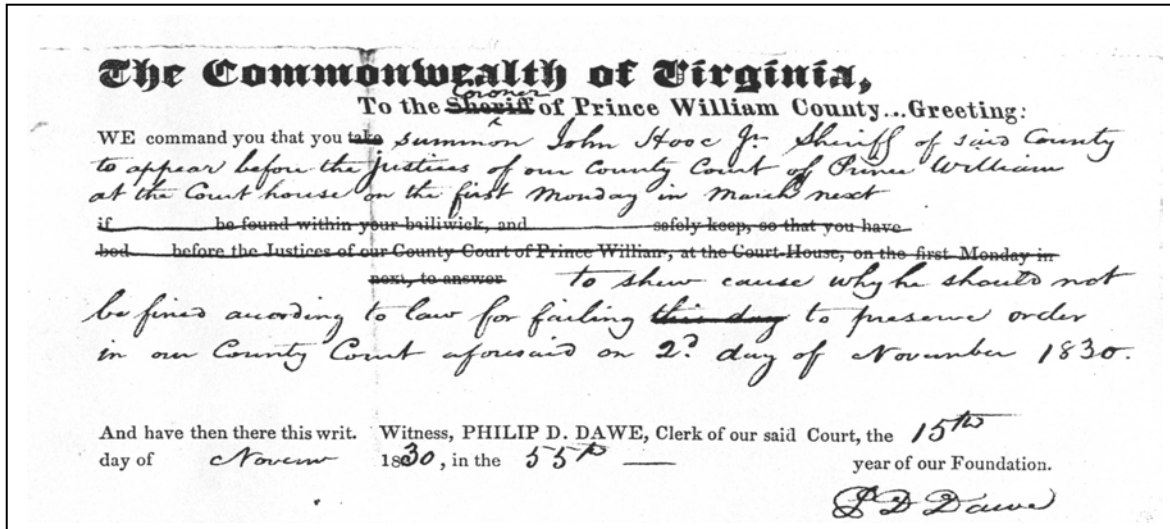 The Commonwealth of Virginia,
Coroner
To the Sheriff of Prince William County...Greeting:
WE command you that you take summon John Hooe Jr. Sheriff of said County
to appear before the Justices of our County Court of Prince William
at the Court house on the first Monday in March next
if be found within your bailiwick, and safely keep, so that you have
bod before the Justices of our County Court of Prince William, at the Court-House, on the first Monday in
next, to answer to shew cause why he should not
be fined acording to law for failing this day to preserve order
in our County Court aforesaid on 2d day of November 1830.
And have then there this writ. Witness, PHILIP D. DAWE, Clerk of our said Court, the 15th
day of Novem 1830, in the 55th year of our Foundation.
P D Dawe